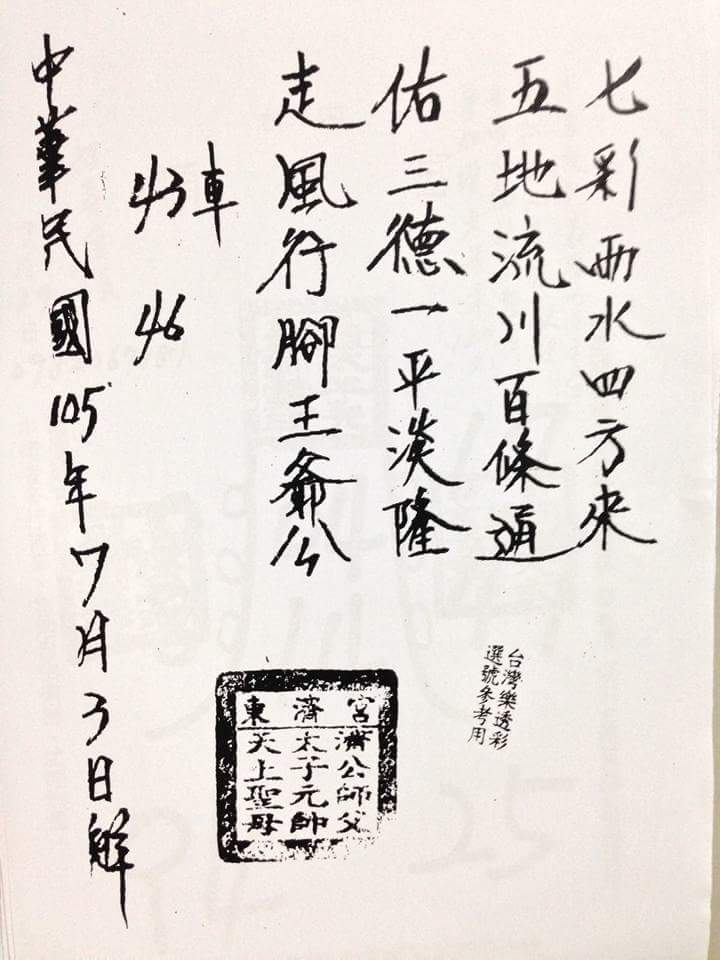 七彩雨水四方來
五地流川百條通
佑三德一平淡隆
走風行腳王爺公
車
43
46
中華民國105年7月3日解
台灣樂透彩
選號參考用
東濟宮
濟公師父
太子元帥
天上聖母